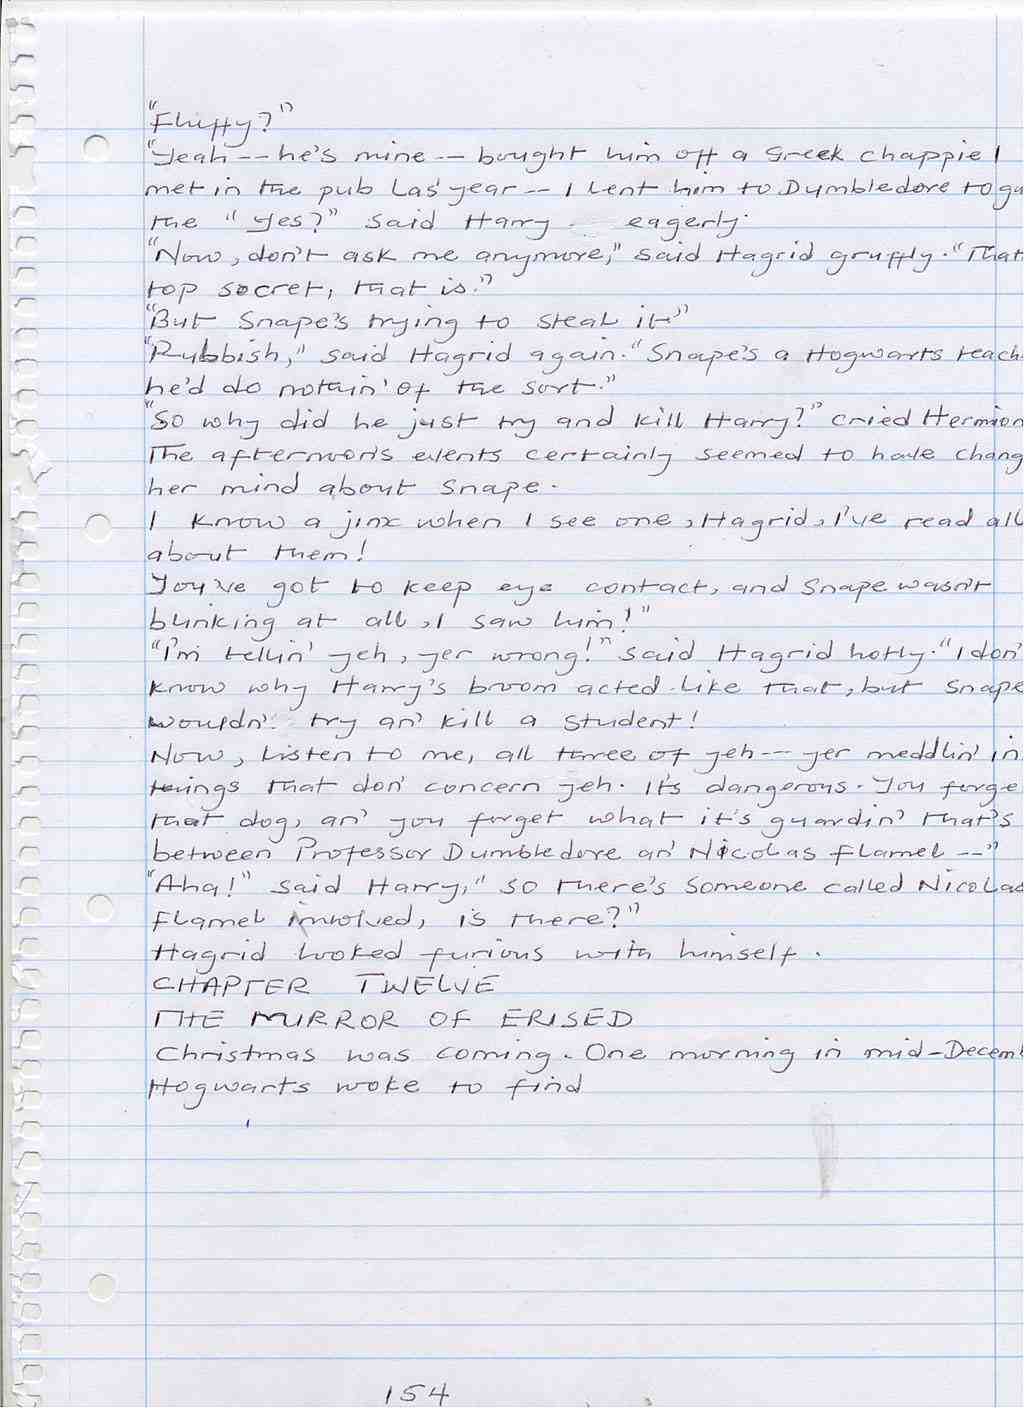 "Fluffy?"
"Yeah -- he's mine -- bought him off a Greek chappie I
met in the pub las' year -- I lent him to Dumbledore to gu
the "Yes?" said Harry eagerly.
"Now, don't ask me anymore," said Hagrid gruffly. "That
top secret, that is."
"But Snape's trying to steal it"
"Rubbish," said Hagrid again. "Snape's a Hogwarts teach
he'd do nothin' of the sort."
"So why did he just try and kill Harry?" cried Hermion
The afternoon's events certainly seemed to have chang
her mind about Snape.
I know a jinx when I see one, Hagrid, I've read all
about them!
You've got to keep eye contact, and Snape wasn't
blinking at all, I saw him!"
"I'm tellin' yeh, yer wrong!" said Hagrid hotly. "I don'
know why Harry's broom acted like that, but Snape
wouldn' try an' kill a student!
Now, listen to me, all three of yeh -- yer meddlin' in
things that don' concern yeh. It's dangerous. You forge
that dog, an' you forget what it's guardin' that's
between Professor Dumbledore an' Nicolas Flamel --"
"Aha!" said Harry," so there's someone called Nicolas
Flamel involved, is there?"
Hagrid looked furious with himself.
CHAPTER TWELVE
THE MIRROR OF ERISED
Christmas was coming. One morning in mid-Decemb
Hogwarts woke to find
154